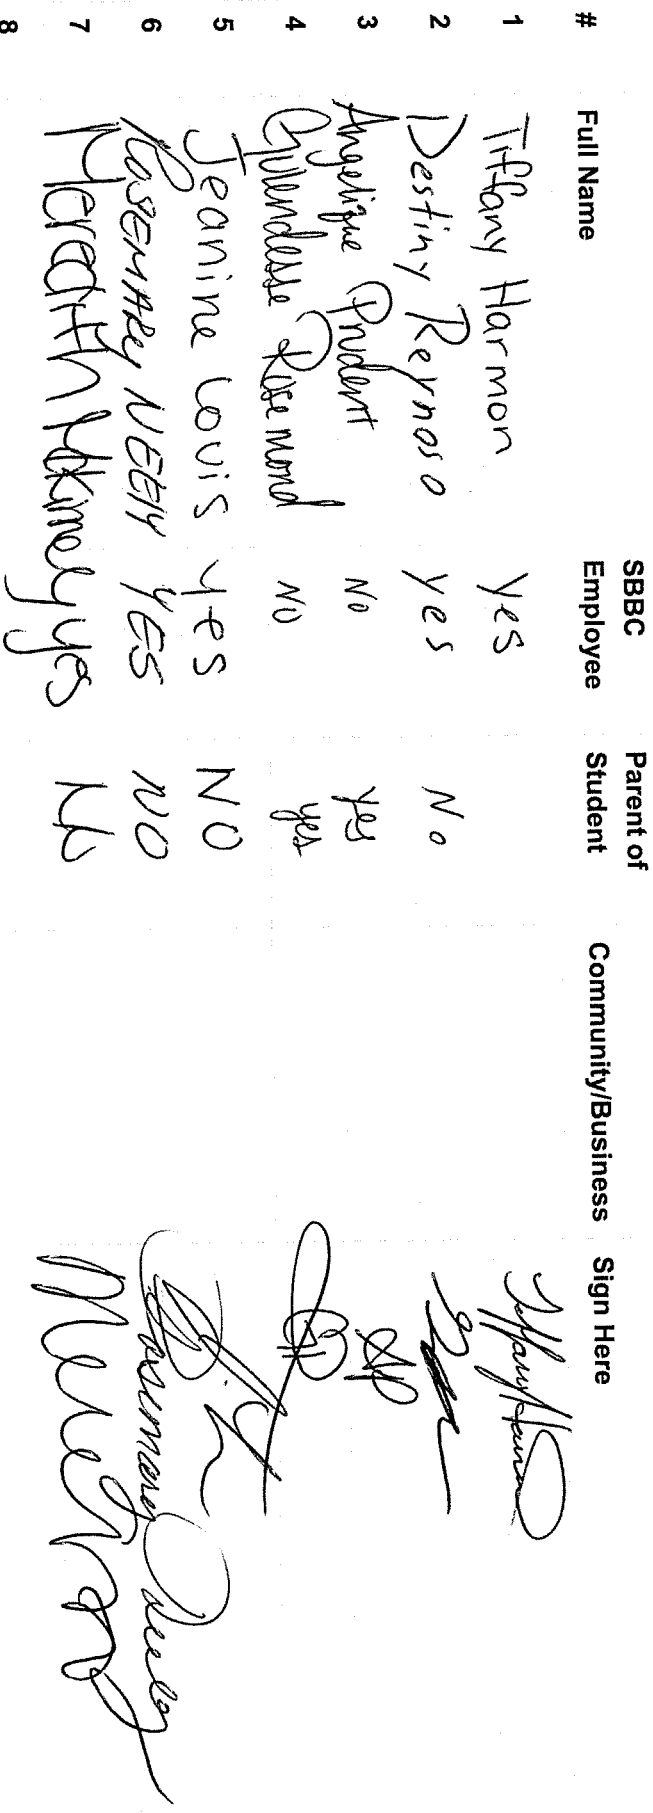 # Full Name SBBC Employee Parent of Student Community/Business Sign Here
1 Tiffany Harmon yes Tiffany Harmon
2 Destiny Reynoso yes No
3 Angelique Prudent No yes AP
4 Guendesse Rosemond No yes
5 Jeanine Louis yes NO
6 ROSEMARY NEELY YES NO Rosemary Neely
7 Meredith McKinney yes No
8